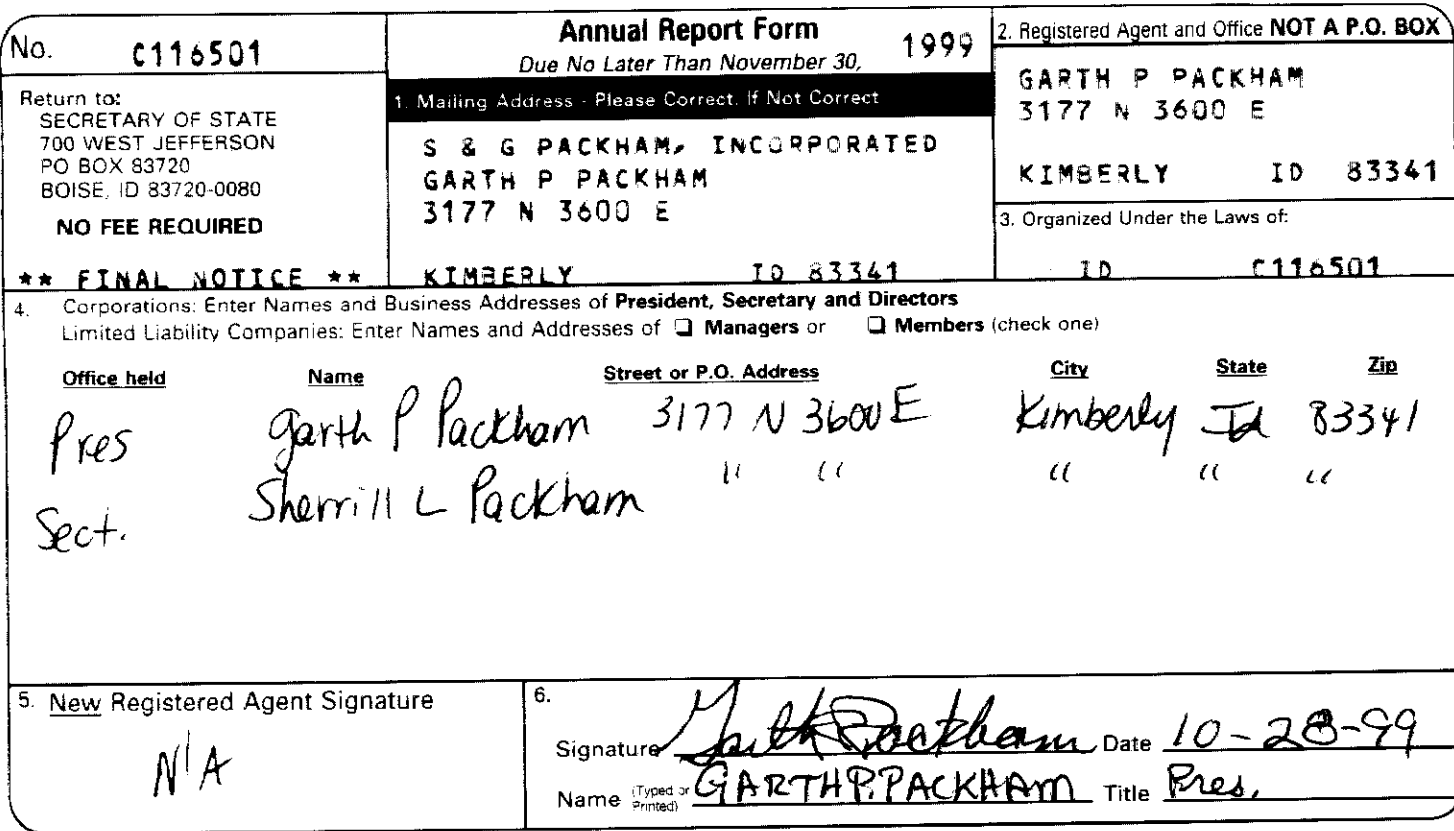 No. C116501
Return to:
SECRETARY OF STATE
700 WEST JEFFERSON
PO BOX 83720
BOISE, ID 83720-0080
NO FEE REQUIRED
** FINAL NOTICE **
Annual Report Form 1999
Due No Later Than November 30,
1. Mailing Address - Please Correct, If Not Correct
S & G PACKHAM, INCORPORATED
GARTH P PACKHAM
3177 N 3600 E
KIMBERLY ID 83341
2. Registered Agent and Office NOT A P.O. BOX
GARTH P PACKHAM
3177 N 3600 E
KIMBERLY ID 83341
3. Organized Under the Laws of:
ID C116501
4. Corporations: Enter Names and Business Addresses of President, Secretary and Directors
Limited Liability Companies: Enter Names and Addresses of ❑ Managers or ❑ Members (check one)
Office held Name Street or P.O. Address City State Zip
Pres Garth P Packham 3177 N 3600 E Kimberly Id 83341
Sect. Sherrill L Packham " " " " "
5. New Registered Agent Signature
N/A
6.
Signature Garth P Packham Date 10-28-99
Name (Typed or Printed) GARTH P. PACKHAM Title Pres.